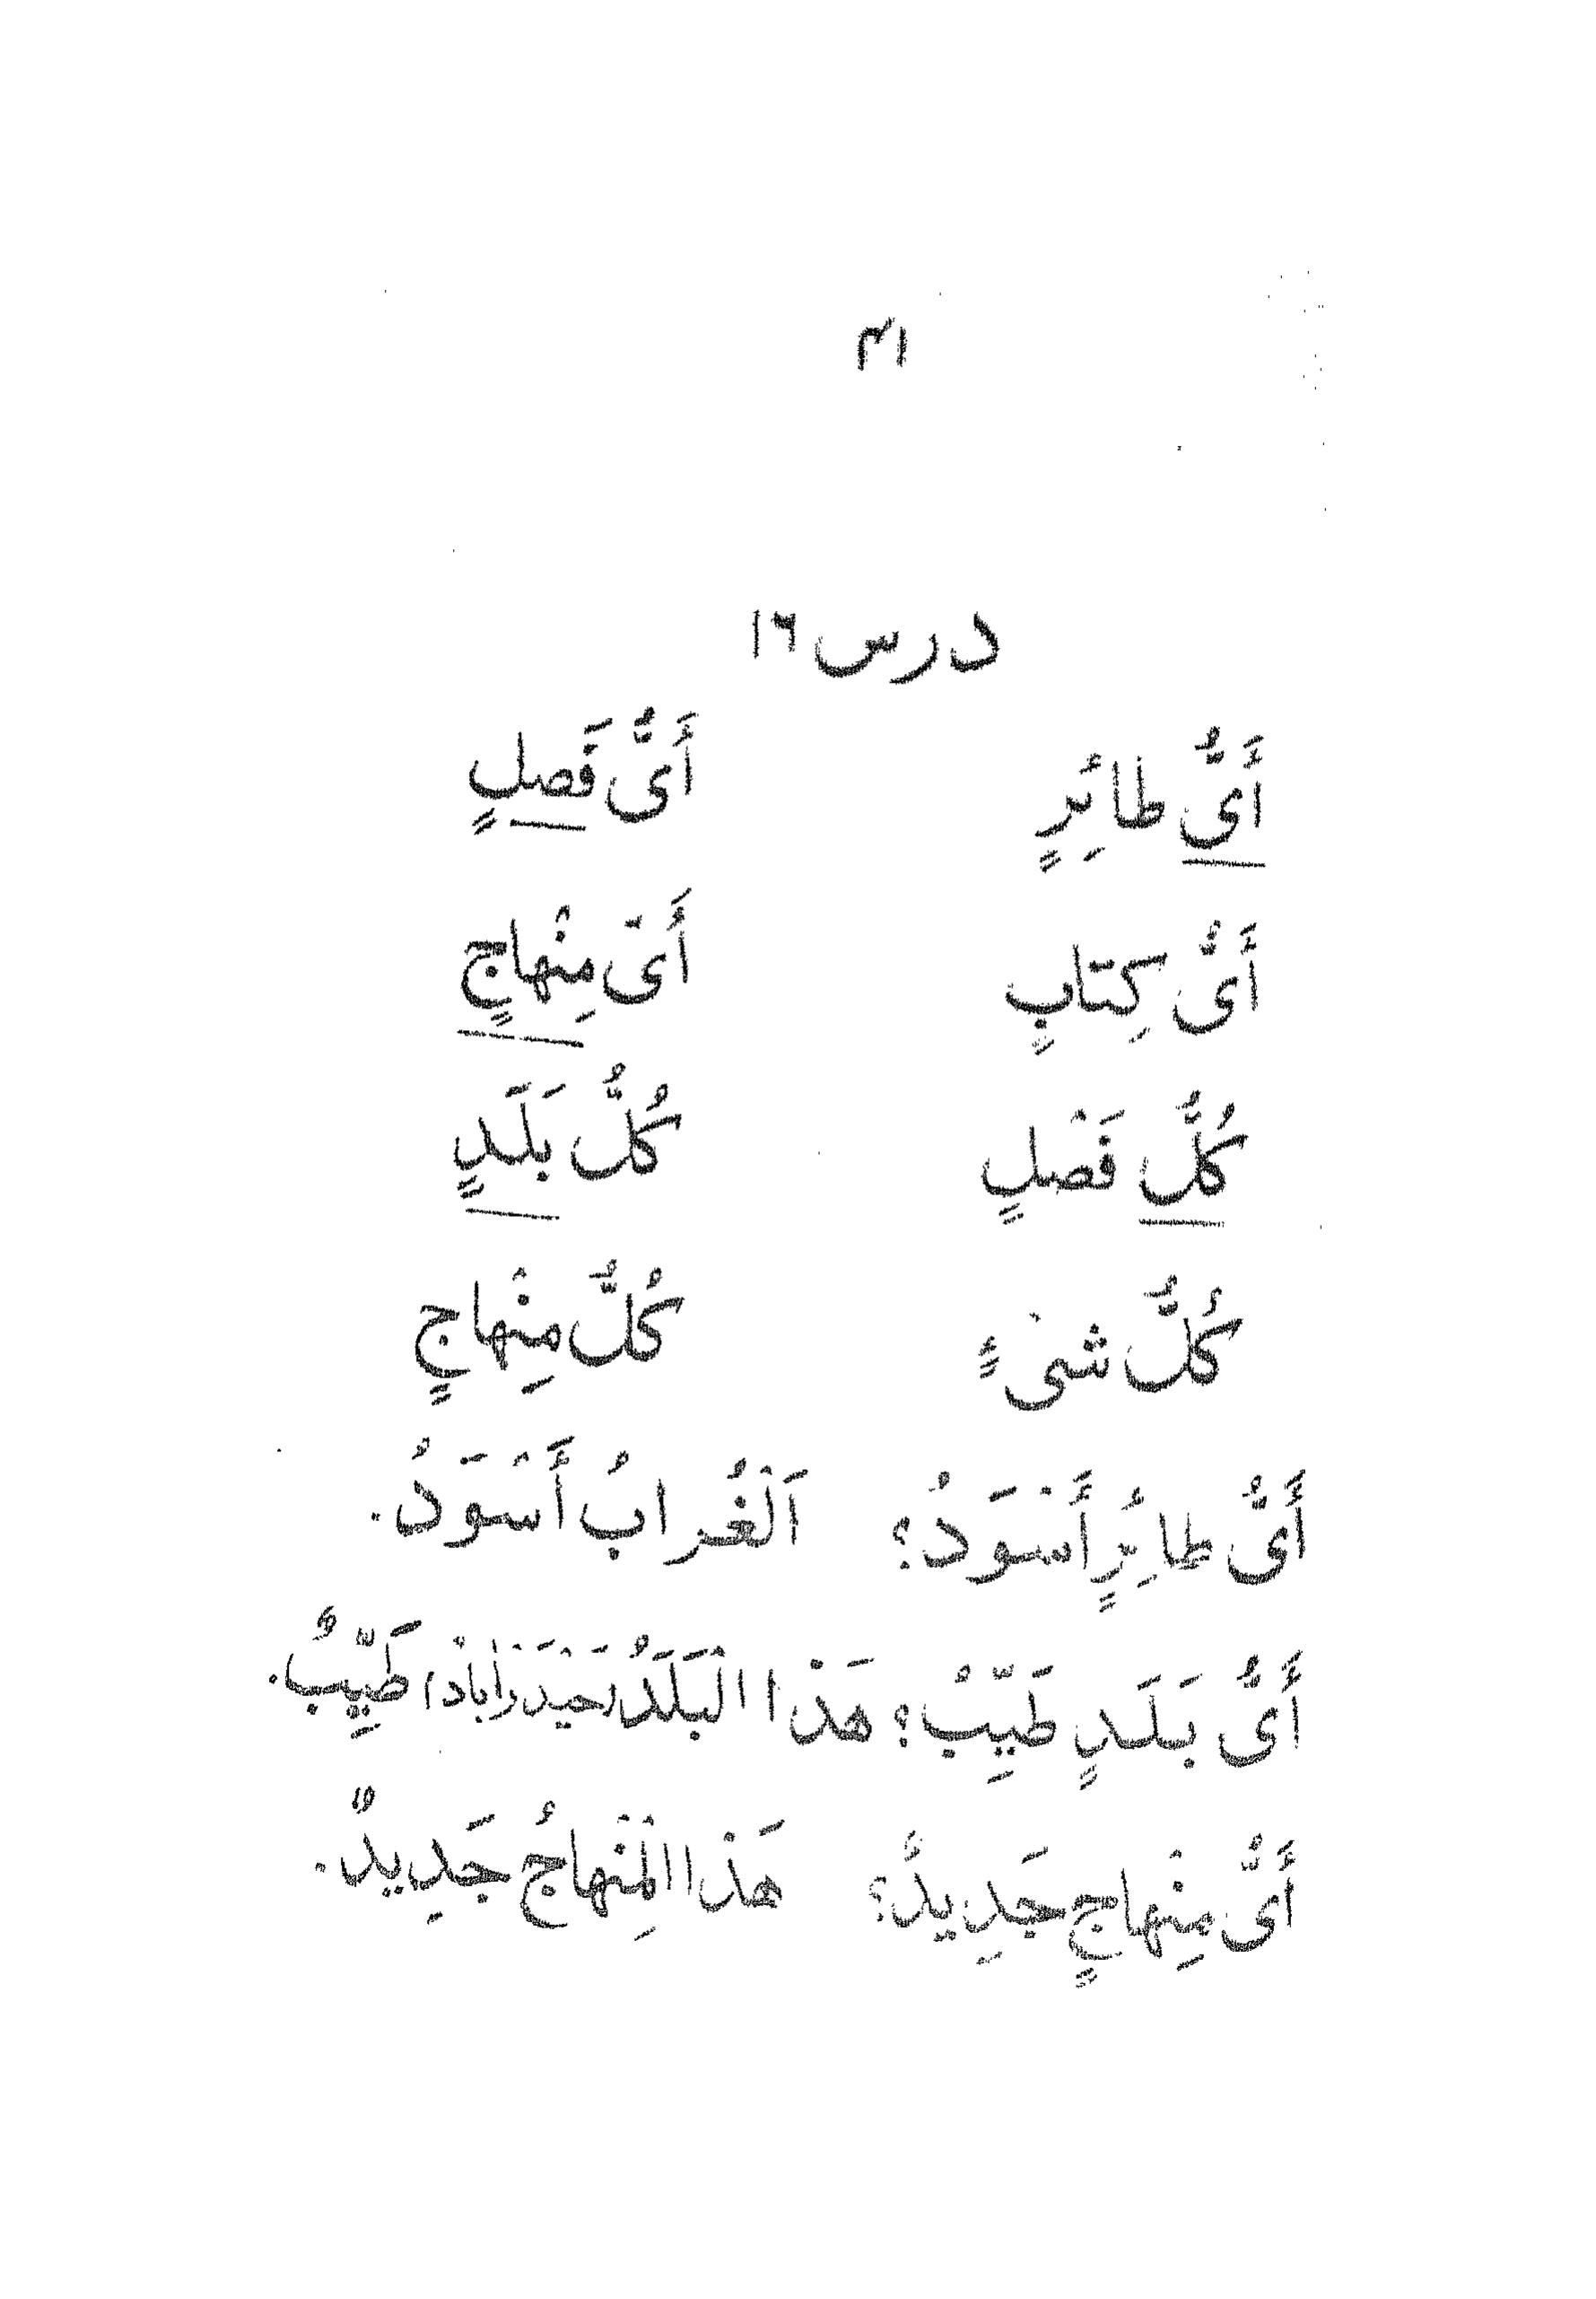 ۴۱
درس ۱۶
أَىُّ طائِرٍ أَىُّ فَصلٍ
أَىُّ كِتابٍ أَىّ مِنْهاجٍ
كُلُّ فَصْلٍ كُلُّ بَلَدٍ
كُلُّ شىْءٍ كُلُّ مِنْهاجٍ
أَىُّ طائِرٍ أَسْوَدُ؟ اَلْغُرابُ أَسْوَدُ.
أَىُّ بَلَدٍ طَيِّبٌ؟ هَذا الْبَلَدُ (حَيْدَرْاَبادْ) طَيِّبٌ.
أَىُّ مِنْهاجٍ جَدِيدٌ؟ هَذا الْمِنْهاجُ جَدِيدٌ.